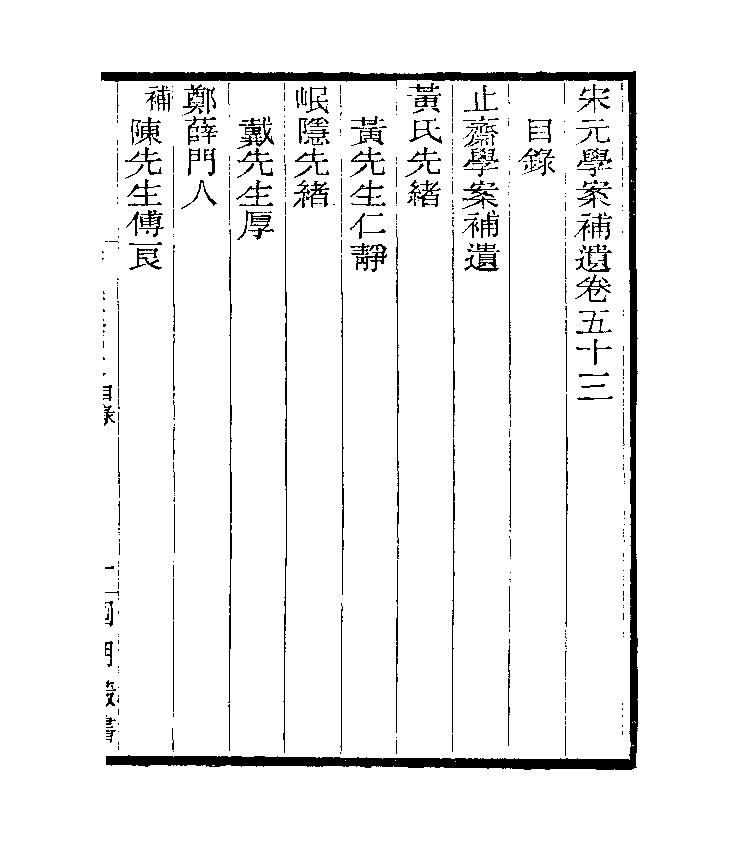 宋元學案補遺卷五十三
目錄
止齋學案補遺
黃氏先緒
黃先生仁靜
岷隱先緒
戴先生厚
鄭薛門人
補陳先生傅良
目錄